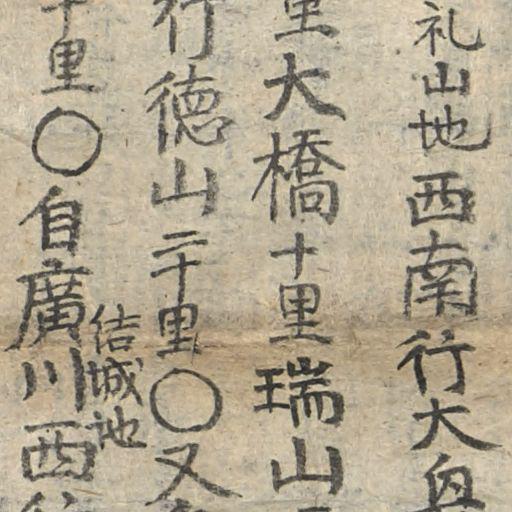 礼山地西南行大
里大橋十里瑞山
行德山二十里〇又
十里〇自廣川結城地西